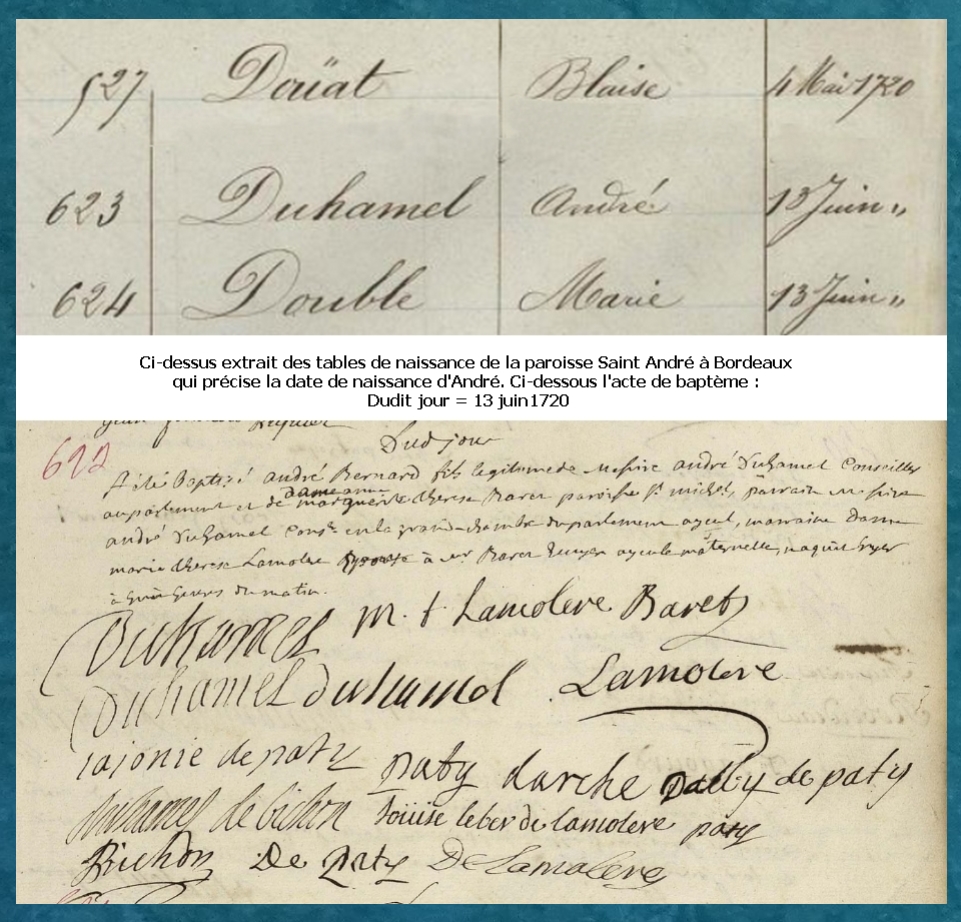 527 Doüat Blaise 4 Mai 1720
623 Duhamel André 13 Juin „
624 Double Marie 13 Juin „
Ci-dessus extrait des tables de naissance de la paroisse Saint André à Bordeaux
qui précise la date de naissance d'André. Ci-dessous l'acte de baptème :
Dudit jour = 13 juin1720
Dud jour
622
A été Baptizé andré Bernard fils legitime de Messire andré Duhamel Conseiller
au parlement et de dame marguerite therese Baret paroisse St michel, parrain
andré Duhamel Conser en la grand-chambre du parlement ayeul, marraine Dame
marie therese Lamolere à mr Baret Ecuyer ayeule maternelle, naquit hyer
à heures du matin.
Duhamel m. t Lamolere Baret
Duhamel duhamel Lamolere
de paty paty darche pailly de paty
duhamel de bichon louise leber de lamolere paty
Bichon De paty De Lamolere